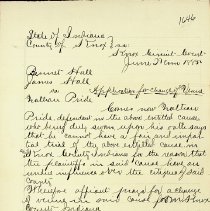 1646
State of Indiana
County of Knox ss.
Knox Circuit Court
June Term 185
Bennet Hall
James Hall
vs Application for change of Venue
Nathan Pride
Comes now Nathan
Pride defendant in the above entitled cause
who being duly sworn upon his oath says
that he cannot have a fair and impar
tial trial of the above entitled cause in
Knox County Indiana for the reason that
the plaintiff in said cause have an
undue influence over the citizens of said
County
Wherefore affiant prays for a change
of venue in said cause from Knox
County Indiana